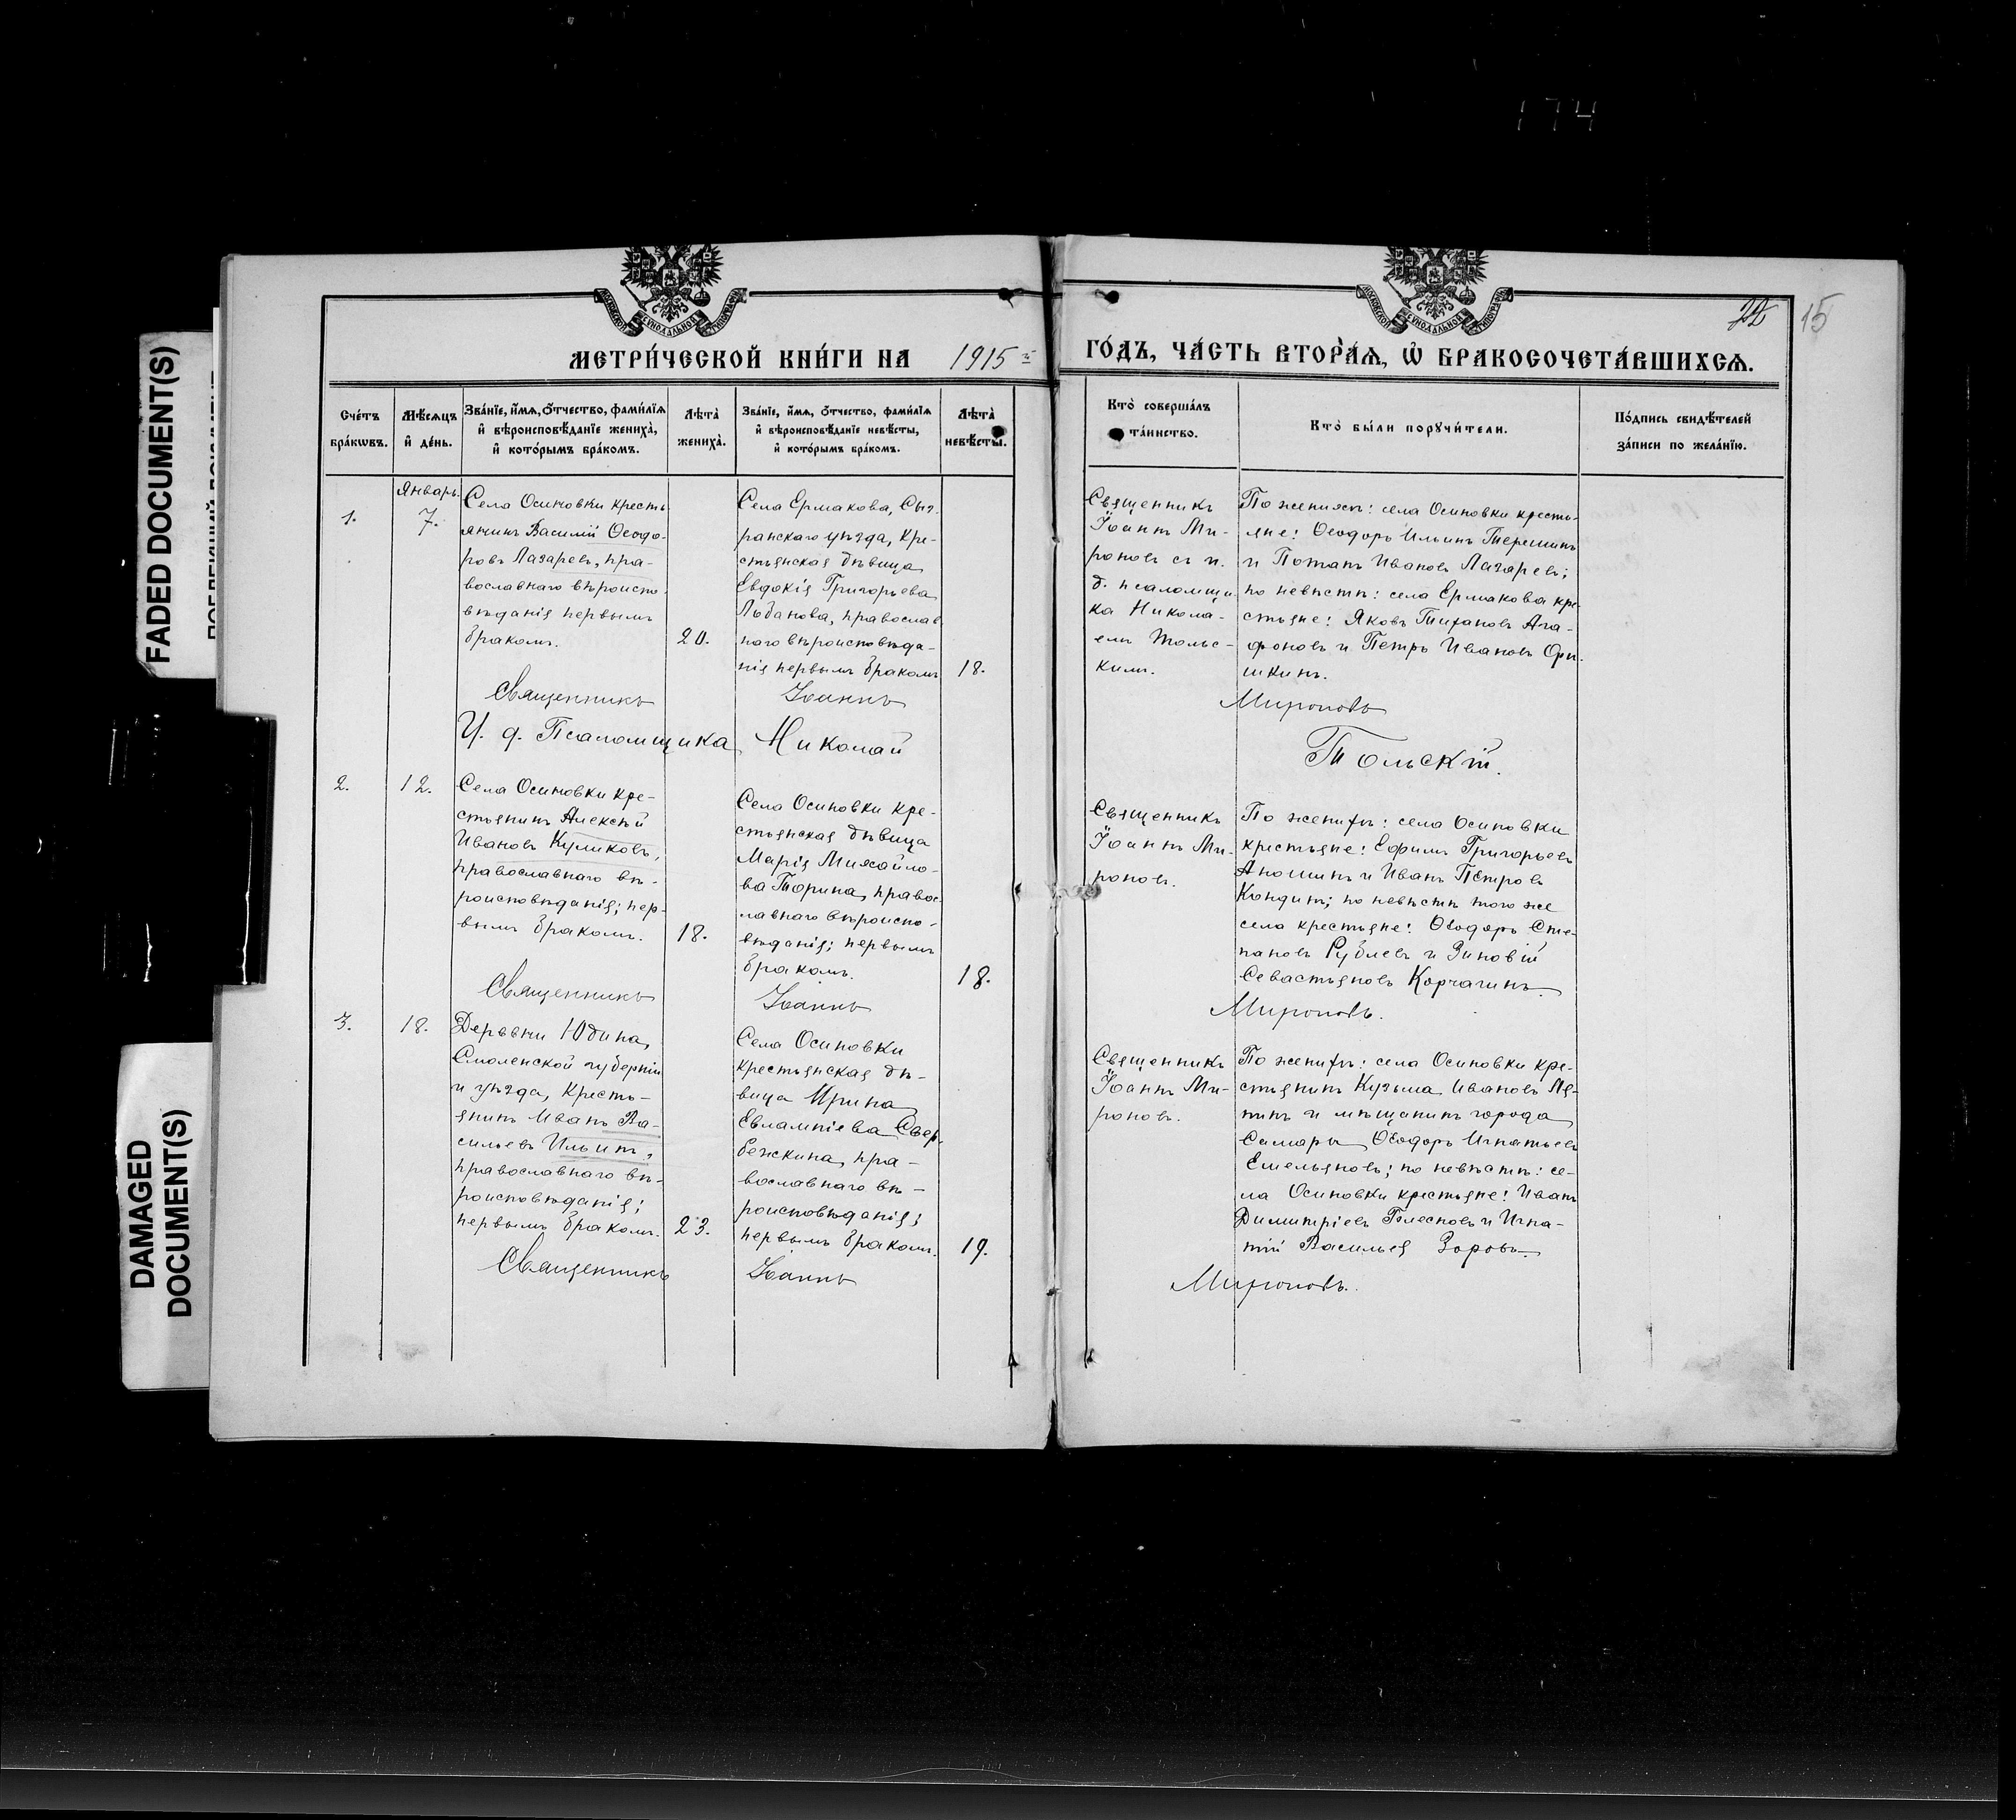 174
FADED DOCUMENT(S)
DAMAGED
DOCUMENT(S)
15
МЕТРИ́ЧЕСКОЙ КНИ́ГИ НА 1915 ГО́ДЪ, ЧА́СТЬ ВТОРА́Я, Ѡ҆ БРАКОСОЧЕТА́ВШИХСЯ.
Сче́тъ
бра́кѡвъ.
Мѣ́сяцъ
и҆ де́нь.
Зва́нїе, и҆́мя, ѻ҆́тчество, фами́лїя
и҆ вѣроисповѣ́данїе жениха̀,
и҆ кото́рымъ бра́комъ.
Лѣта̀
жениха̀.
Зва́нїе, и҆́мя, ѻ҆́тчество, фами́лїя
и҆ вѣроисповѣ́данїе невѣ́сты,
и҆ кото́рымъ бра́комъ.
Лѣта̀
невѣ́сты.
Кто̀ соверша́лъ
та́инство.
Кто̀ бы́ли порꙋчи́тели.
По́дпись свидѣ́телей
за́писи по жела́нїю.
1.
Январь.
7.
Села Осиновки кресть
янинъ Василій Ѳеодо-
ровъ Лазаревъ, пра-
вославнаго вѣроиспо-
вѣданія первымъ
бракомъ.
20.
Села Ермакова, Сыз-
ранскаго уѣзда, кре-
стьянская дѣвица
Евдокія Григорьева
Лобанова, православ
наго вѣроисповѣда-
нія первымъ бракомъ
18.
Священникъ
Іоаннъ Ми-
роновъ съ и.
д. псаломщи
ка Никола-
емъ Тольс-
кимъ.
По женихѣ: села Осиновки кресть-
яне: Ѳеодоръ Ильинъ Терешинъ
и Потапъ Ивановъ Лазаревъ;
по невѣстѣ: села Ермакова кре-
стьяне: Яковъ Тихановъ Ага-
фоновъ и Петръ Ивановъ
шкинъ.
Священникъ Іоаннъ Мироновъ
И. д. Псаломщика Николай Тольскій.
2.
12.
Села Осиновки кре-
стьянинъ Алексѣй
Ивановъ Куликовъ,
православнаго вѣ-
роисповѣданія; пер-
вымъ бракомъ.
18.
Села Осиновки кре-
стьянская дѣвица
Марія Михайло-
ва Торина, правос-
лавнаго вѣроиспо-
вѣданія; первымъ
бракомъ.
18.
Священникъ
Іоаннъ Ми-
роновъ.
По женихѣ: села Осиновки
крестьяне: Ефимъ Григорьевъ
Аношинъ и Иванъ Петровъ
Кондинъ; по невѣстѣ того же
села крестьяне: Ѳеодоръ Сте-
пановъ Рублевъ и Зиновій
Севастьяновъ Корчагинъ.
Священникъ Іоаннъ Мироновъ.
3.
18.
Деревни Юдина,
Смоленской губерніи
и уѣзда, кресть-
янинъ Иванъ Ва-
сильевъ Ильинъ,
православнаго вѣ-
роисповѣданія;
первымъ бракомъ.
23.
Села Осиновки
крестьянская дѣ-
вица Ирина
Евлампіева Свер-
бежкина, пра-
вославнаго вѣ-
роисповѣданія;
первымъ бракомъ.
19.
Священникъ
Іоаннъ Ми-
роновъ.
По женихѣ: села Осиновки кре-
стьянинъ Кузьма Ивановъ Ля-
пинъ и мѣщанинъ города
Самары Ѳеодоръ Игнатьевъ
Емельяновъ; по невѣстѣ: се-
ла Осиновки крестьяне: Иванъ
Димитріевъ и Игна-
тій Васильев Зоровъ.
Священникъ Іоаннъ Мироновъ.